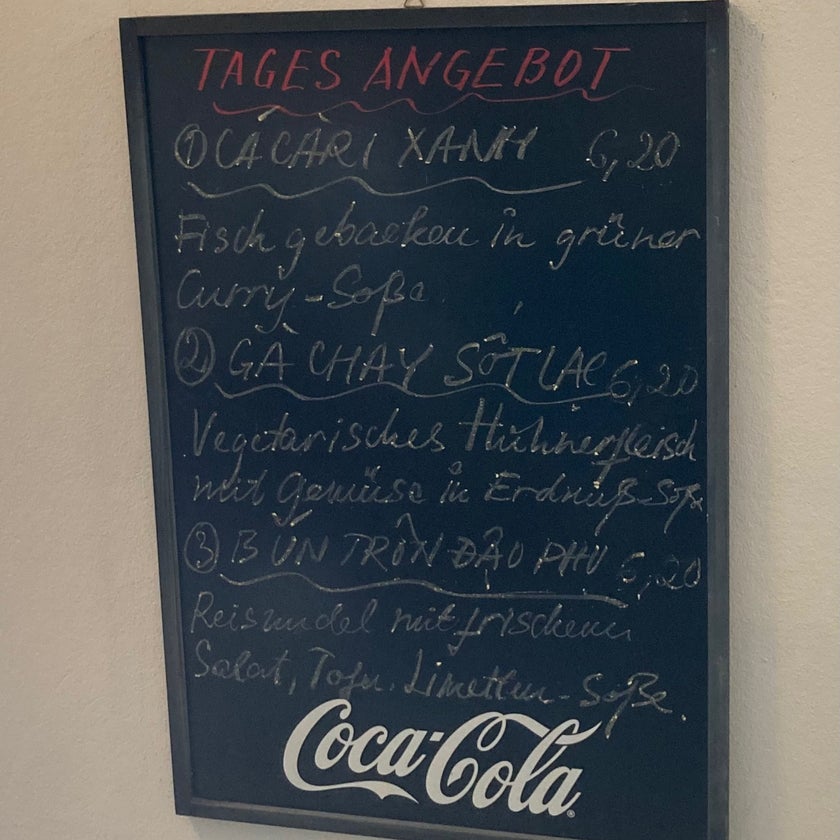 TAGES ANGEBOT
① CÁ CÀRI XANH 6,20
Fisch gebacken in grüner
Curry-Soße.
② GÀ CHAY SỐT LAC 6,20
Vegetarisches Hühnerfleisch
mit Gemüse in Erdnuß-Soße
③ BÚN TRÔN ĐẬU PHU 6,20
Reisnudel mit frischem
Salat, Tofu. Limetten-Soße.
Coca-Cola